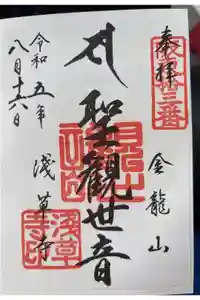 奉拝
坂東十三番
金龍山
聖観世音
浅草寺
浅草寺印
令和五年
八月十六日